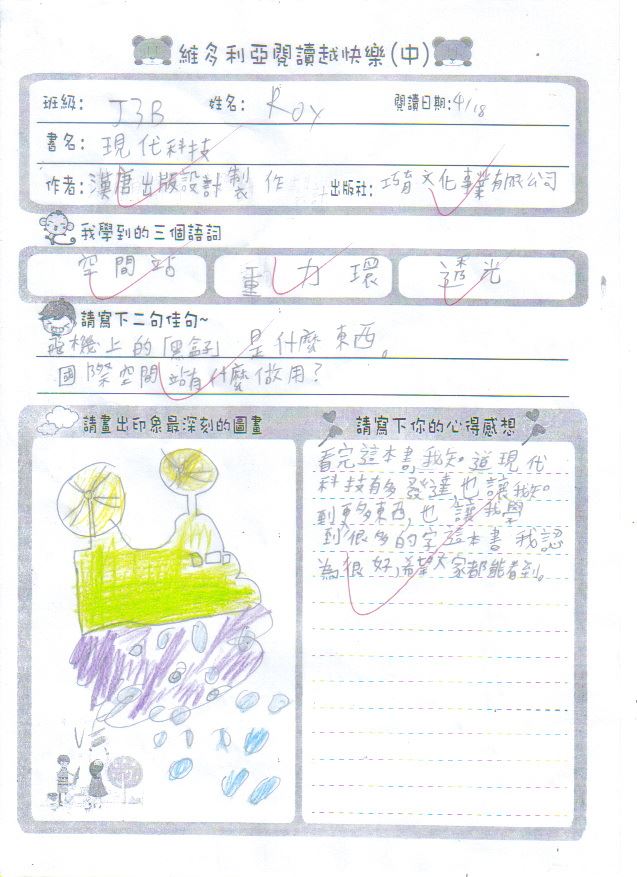 維多利亞閱讀越快樂(中)
班級: J3B 姓名: Roy 閱讀日期:4/18
書名: 現代科技
作者: 漢唐出版設計製作 出版社: 巧育文化事業有限公司
我學到的三個語詞
空間站 重力環 透光
請寫下二句佳句~
飛機上的「黑盒子」是什麼東西。
國際空間站有什麼做用?
請畫出印象最深刻的圖畫
請寫下你的心得感想
看完這本書,我知道現代
科技有多發達,也讓我知
到更多東西,也讓我學
到很多的字這本書我認
為很好,希望大家都能看到。